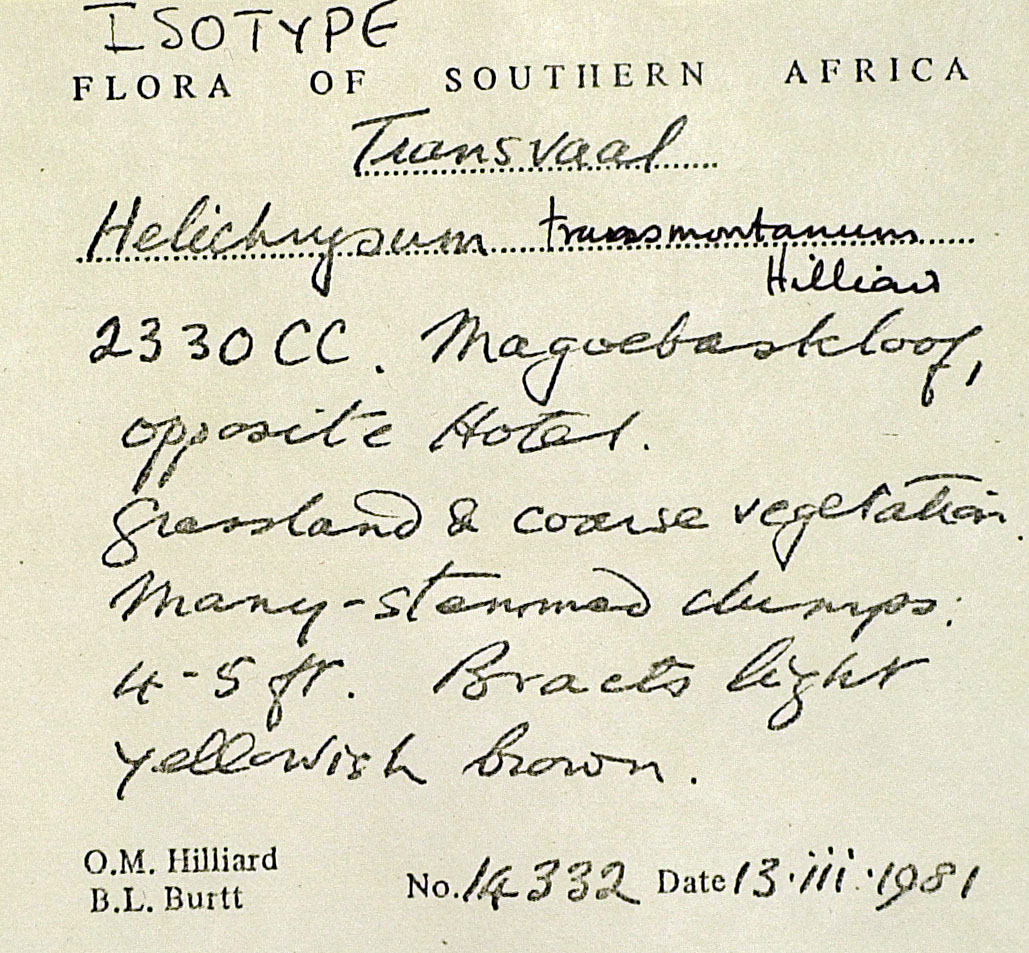 ISOTYPE
FLORA OF SOUTHERN AFRICA
Transvaal
Helichrysum transmontanum
Hilliard
2330 CC. Magoebaskloof,
opposite Hotel.
Grassland & coarse vegetation.
Many-stemmed clumps:
4-5 ft. Bracts light
yellowish brown.
O.M. Hilliard
B.L. Burtt
No. 14332 Date 13·iii·1981